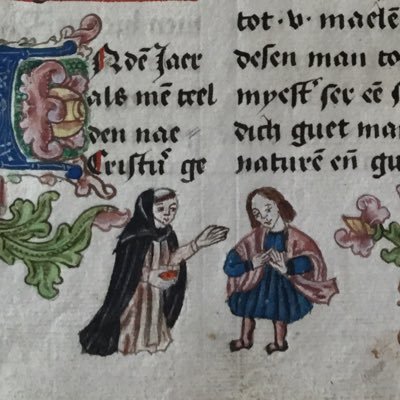 Ndē Jaer
als mē teel
den nae
Cristuˢ ge
tot · v · maelē
desen man to
myest' ser eē s
dich guet ma
naturē eñ gu